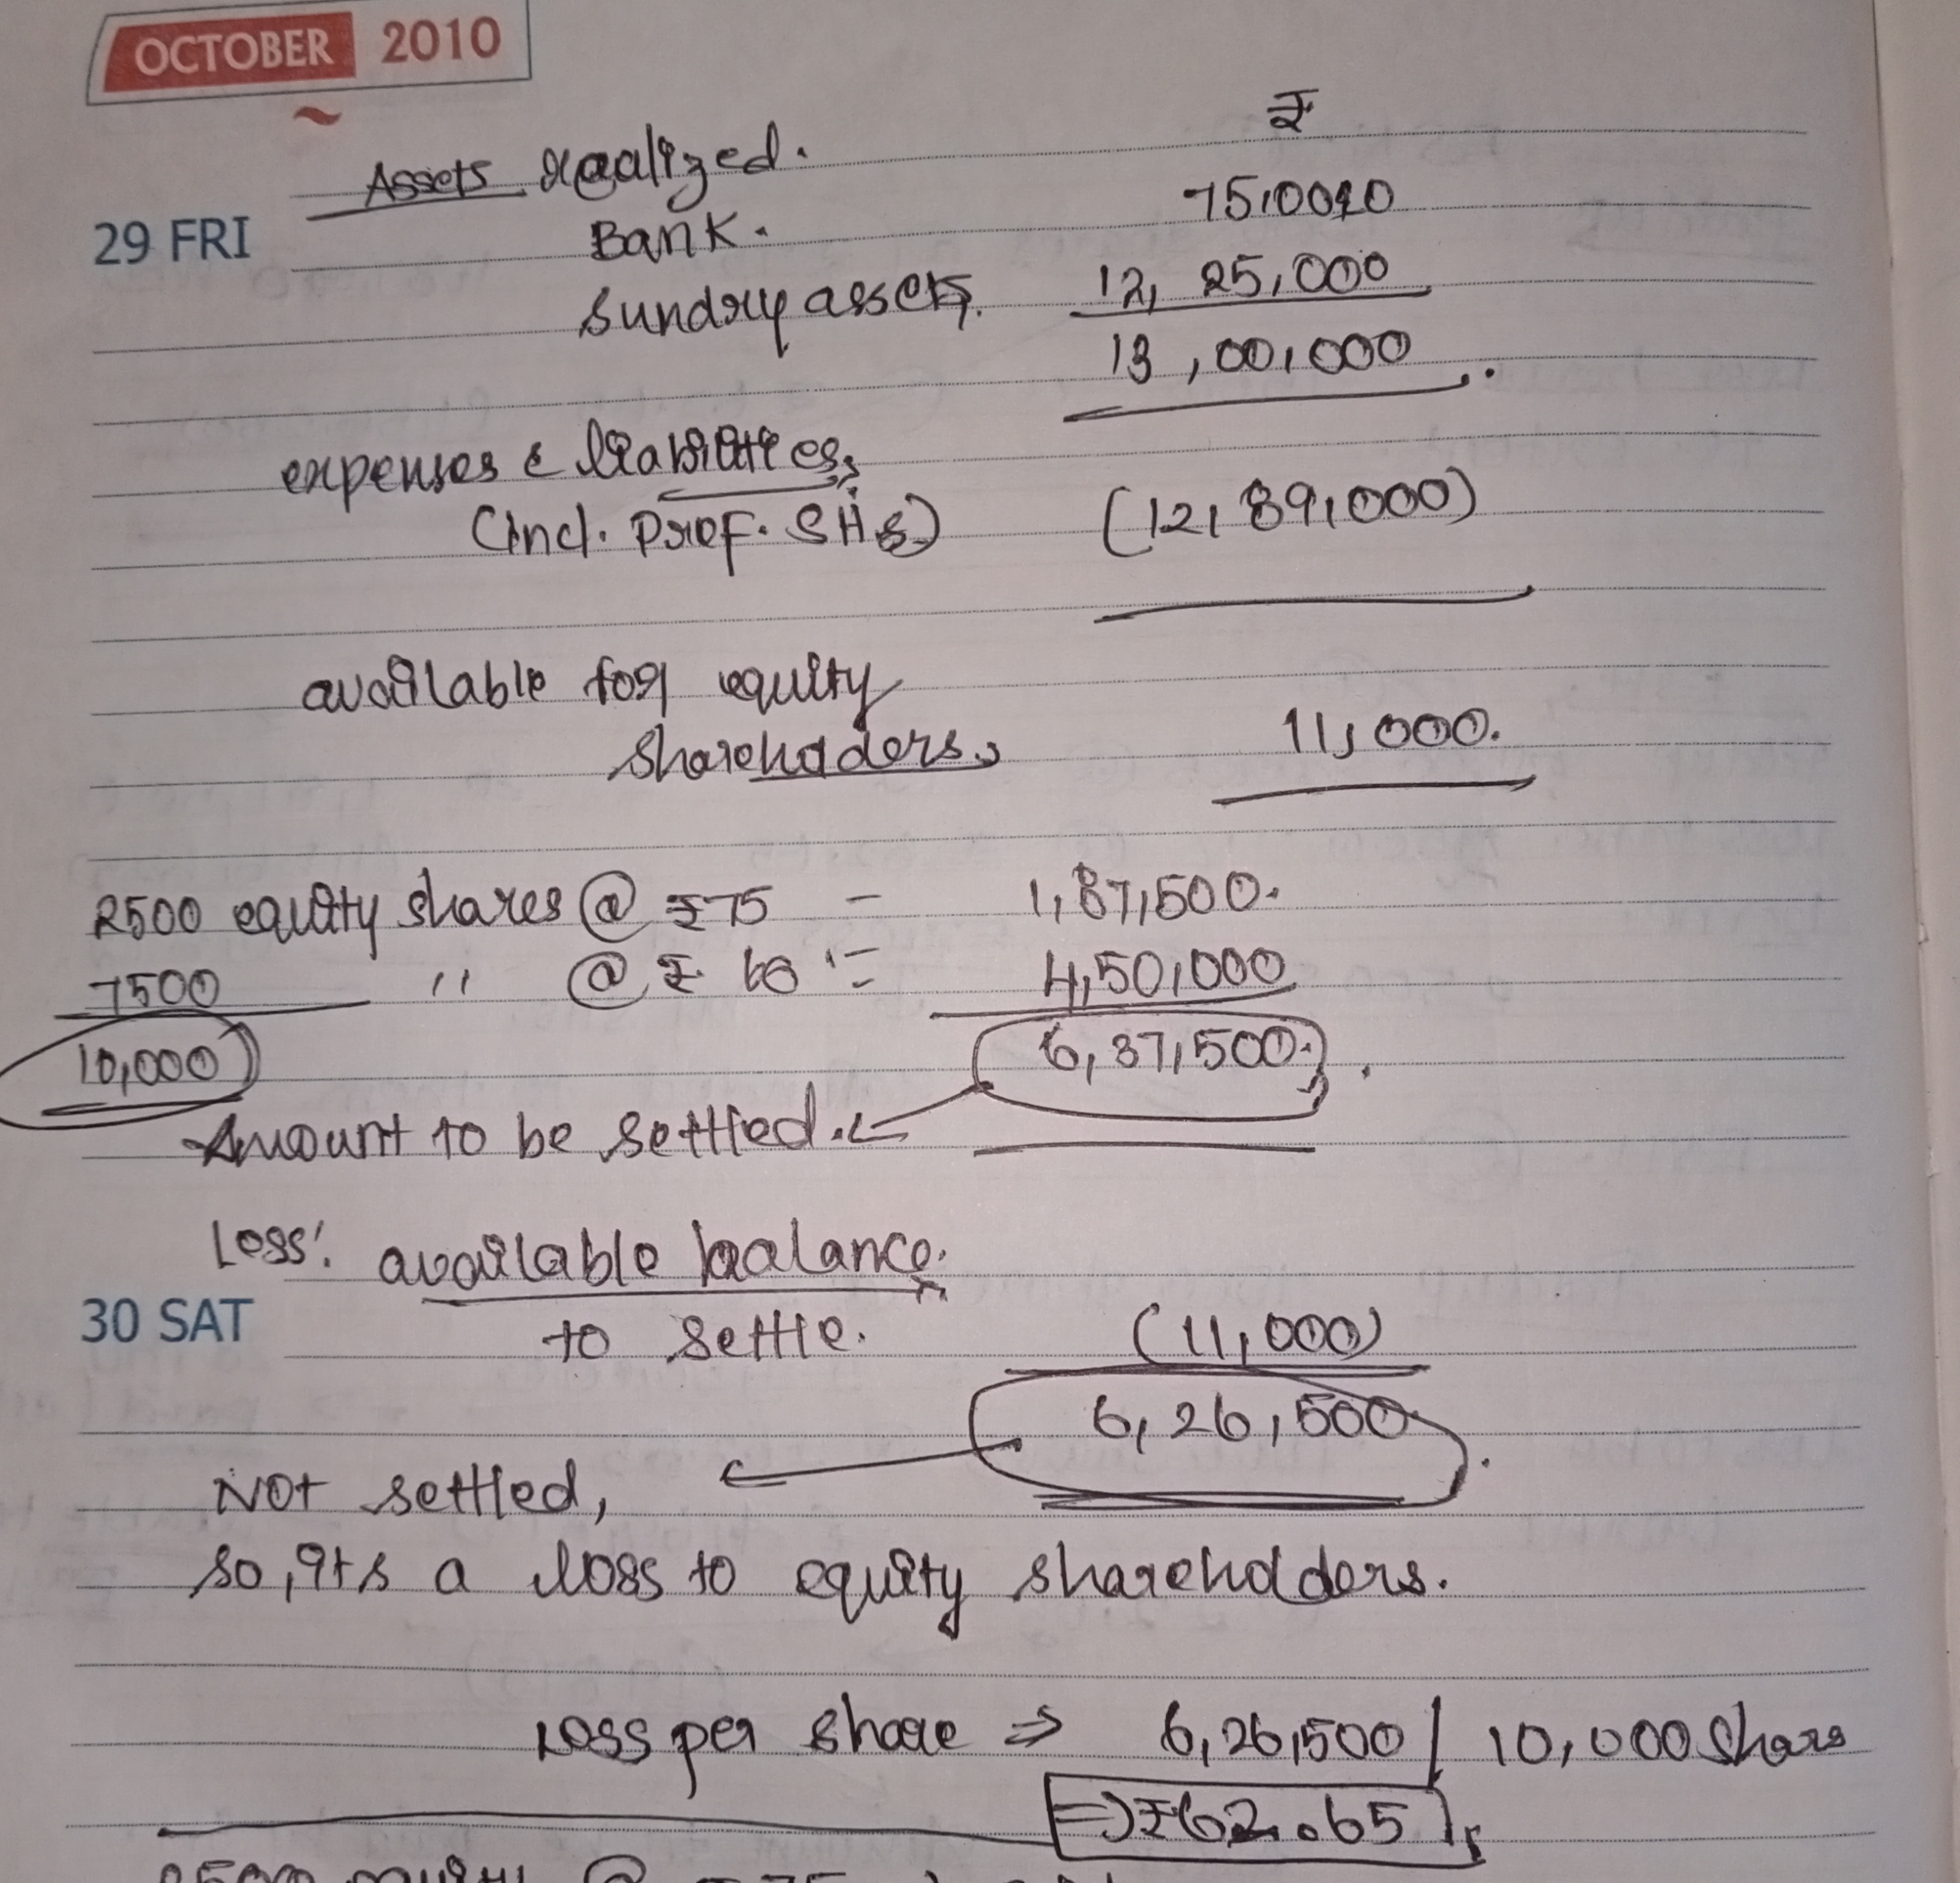 OCTOBER 2010
₹
Assets realized.
29 FRI
Bank. 75,000
Sundry assets. 12, 25,000
13,00,000.
expenses & liabilities,
(incl. Pref. SHs) (12,89,000)
available for equity
shareholders, 11,000.
2500 equity shares @ ₹75 - 1,87,500.
7500 " @ ₹ 60 = 4,50,000
10,000 6,37,500.
Amount to be settled.
Less: available balance.
30 SAT
to settle. (11,000)
6,26,500
Not settled,
so, its a loss to equity shareholders.
Loss per share ⇒ 6,26,500 / 10,000 shares
⇒ ₹62.65